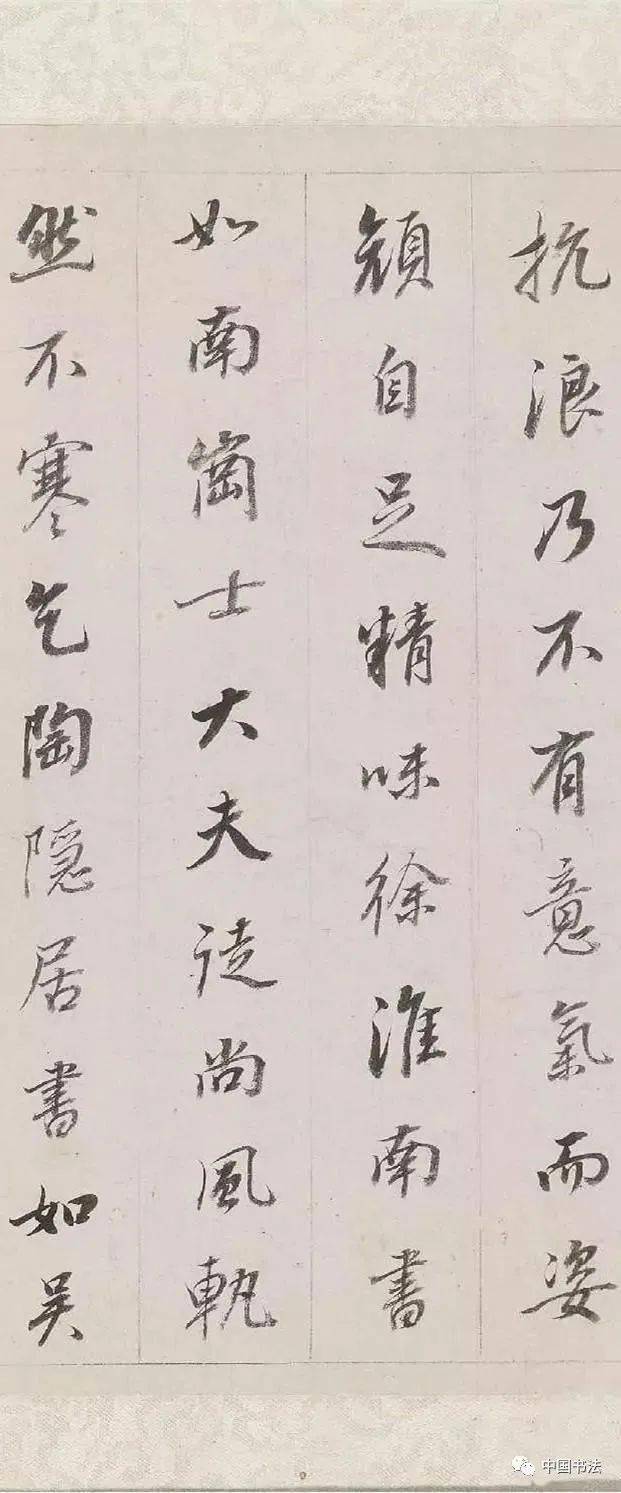 抗浪乃不有意氣而姿
顔自足精味徐淮南書
如南崗士大夫徒尚風軌
然不寒乞陶隠居書如吴
中国书法